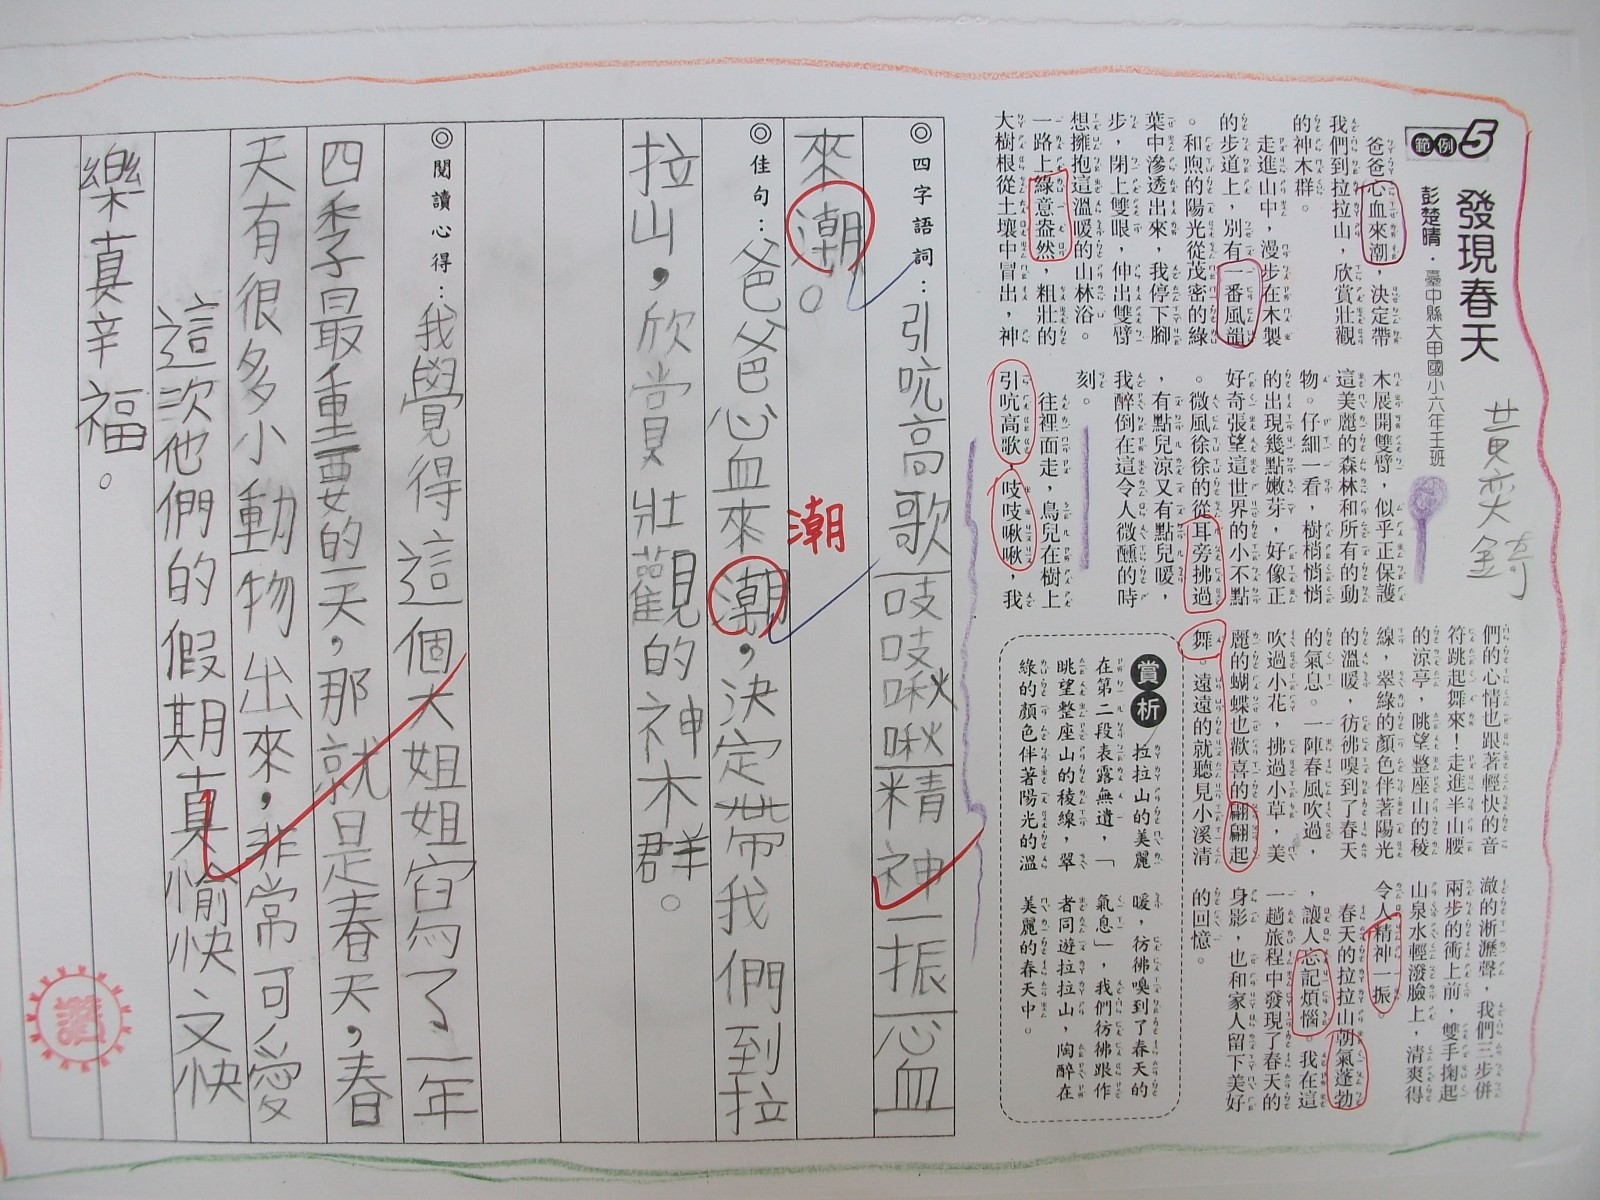 範例5
發現春天
彭楚晴·臺中縣大甲國小六年壬班
黃奕錡
爸爸心血來潮，決定帶
我們到拉拉山，欣賞壯觀
的神木群。
走進山中，漫步在木製
的步道上，別有一番風韻
。和煦的陽光從茂密的綠
葉中滲透出來，我停下腳
步，閉上雙眼，伸出雙臂
想擁抱這溫暖的山林浴。
一路上綠意盎然，粗壯的
大樹根從土壤中冒出，神
木展開雙臂，似乎正保護
這美麗的森林和所有的動
物。仔細一看，樹梢悄悄
的出現幾點嫩芽，好像正
好奇張望這世界的小不點
。微風徐徐的從耳旁拂過
，有點兒涼又有點兒暖，
我醉倒在這令人微醺的時
刻。
往裡面走，鳥兒在樹上
引吭高歌，吱吱啾啾，我
們的心情也跟著輕快的音
符跳起舞來！走進半山腰
的涼亭，眺望整座山的稜
線，翠綠的顏色伴著陽光
的溫暖，彷彿嗅到了春天
的氣息。一陣春風吹過，
吹過小花，拂過小草，美
麗的蝴蝶也歡喜的翩翩起
舞。遠遠的就聽見小溪清
澈的淅瀝聲，我們三步併
兩步的衝上前，雙手掬起
山泉水輕潑臉上，清爽得
令人精神一振。
春天的拉拉山朝氣蓬勃
，讓人忘記煩惱。我在這
一趟旅程中發現了春天的
身影，也和家人留下美好
的回憶。
賞析
拉拉山的美麗
在第二段表露無遺，「
眺望整座山的稜線，翠
綠的顏色伴著陽光的溫
暖，彷彿嗅到了春天的
氣息」，我們彷彿跟作
者同遊拉拉山，陶醉在
美麗的春天中。
◎四字語詞：引吭高歌 吱吱啾啾 精神一振 心血
來潮。
◎佳句：爸爸心血來潮，決定帶我們到拉
潮
拉山，欣賞壯觀的神木群。
◎閱讀心得：我覺得這個大姐姐寫了一年
四季最重要的一天，那就是春天，春
天有很多小動物出來，非常可愛
這次他們的假期真愉快又快
樂真辛福。